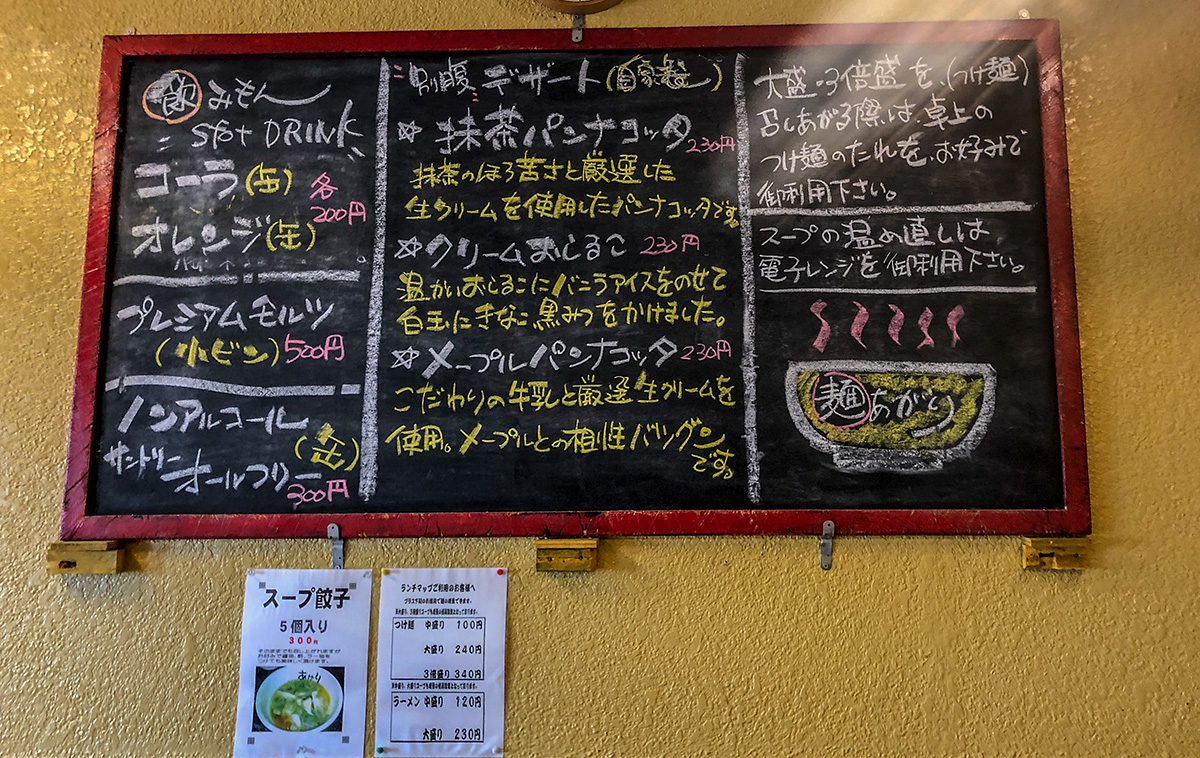 飲みもん
Sfot DRINK
コーラ(缶)
各
200円
オレンジ(缶)
プレミアムモルツ
(小ビン)500円
ノンアルコール
(缶)
サントリー
オールフリー
300円
別腹 デザート(自家製)
☆抹茶パンナコッタ 230円
抹茶のほろ苦さと厳選した
生クリームを使用したパンナコッタです。
☆クリームおしるこ 230円
温かいおしるこにバニラアイスをのせて
白玉にきなこ、黒みつをかけました。
☆メープルパンナコッタ 230円
こだわりの牛乳と厳選生クリームを
使用。メープルとの相性バツグン
です。
大盛・3倍盛を、(つけ麺)
召しあがる際は、卓上の
つけ麺のたれを、お好みで
御利用下さい。
スープの温め直しは、
電子レンジを御利用下さい。
麺あがり
スープ餃子
5個入り
300円
そのままでも召し上がれますが
お好みで醤油、酢、ラー油を
つけても美味しく頂けます。
あがり
ランチマップご利用のお客様へ
つけ麺 中盛り 100円
大盛り 240円
3倍盛り 340円
ラーメン 中盛り 120円
大盛り 230円